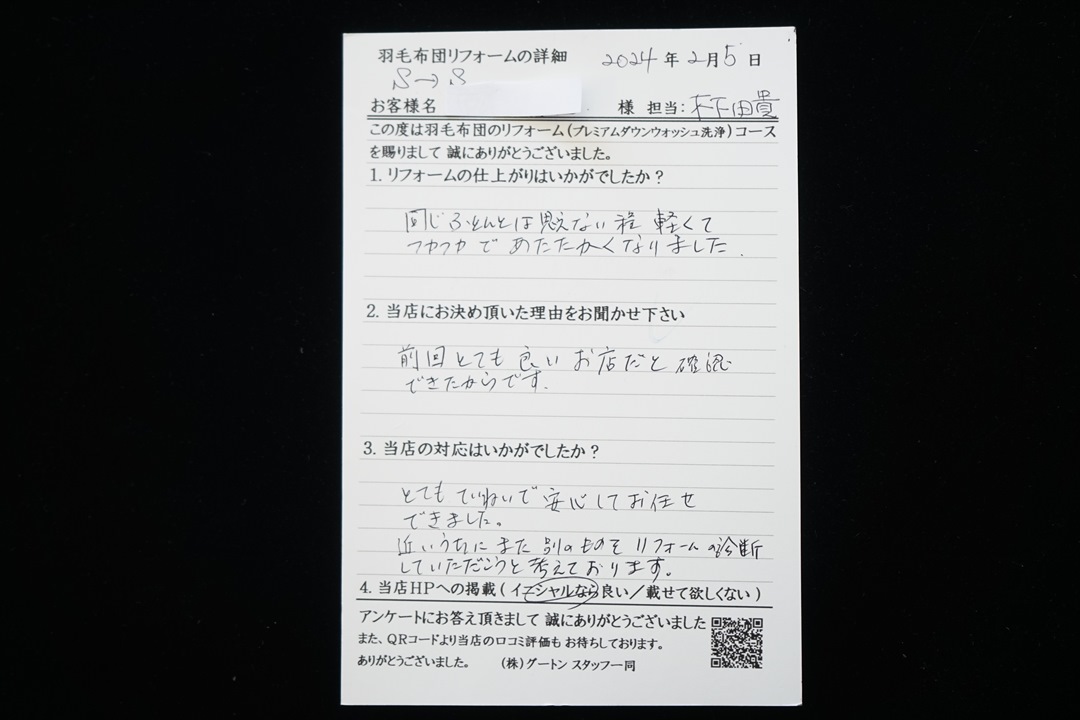 羽毛布団リフォームの詳細 2024年2月5日
S→S
お客様名 様 担当:木下由貴
この度は羽毛布団のリフォーム(プレミアムダウンウォッシュ洗浄)コース
を賜りまして 誠にありがとうございました。
1. リフォームの仕上がりはいかがでしたか?
同じふとんとは思えない程 軽くて
フカフカで あたたかくなりました.
2. 当店にお決め頂いた理由をお聞かせ下さい
前回とても良いお店だと確認
できたからです.
3. 当店の対応はいかがでしたか?
とてもていねいで安心してお任せ
できました。
近いうちにまた別のものをリフォームの診断
していただこうと考えております。
4. 当店HPへの掲載(イニシャルなら良い/載せて欲しくない)
アンケートにお答え頂きまして 誠にありがとうございました
また、QRコードより当店の口コミ評価も お待ちしております。
ありがとうございました。 (株)グートン スタッフ一同